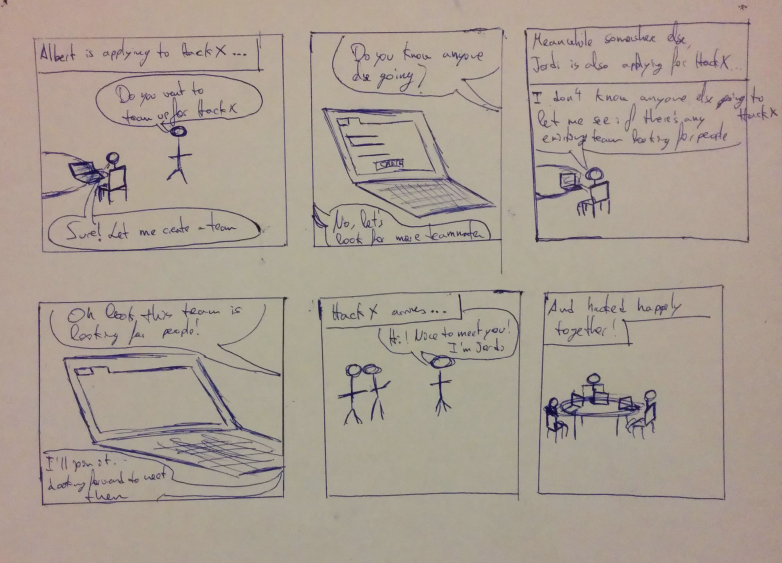 Albert is applying to HackX...
Do you want to
team up for HackX
Sure! Let me create a team
Do you know anyone
else going?
No, let's
look for more teammates
Meanwhile somewhere else,
Jordi is also applying for HackX...
I don't know anyone else going to
HackX
let me see if there's any
existing team looking for people
Oh look, this team is
looking for people!
I'll join it...
Looking forward to meet
them
HackX arrives...
Hi! Nice to meet you!
I'm Jordi
And hacked happily
together!